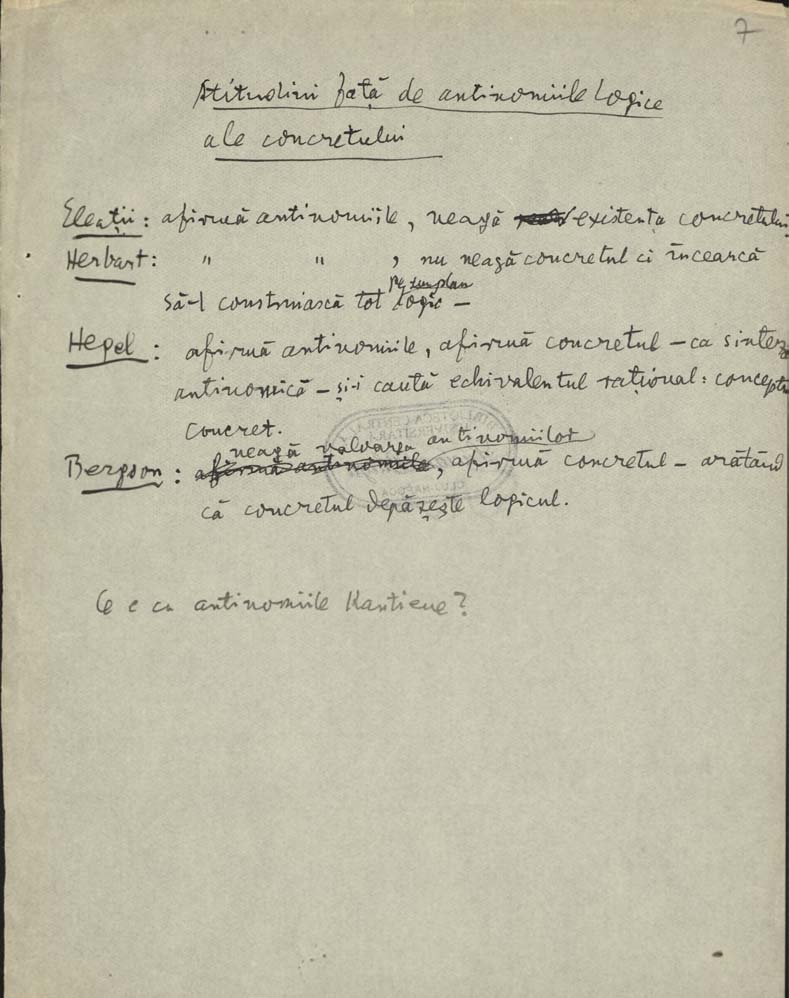 7
Atitudini față de antinomiile logice
ale concretului
Eleații: afirmă antinomiile, neagă existența concretului
Herbart: " " , nu neagă concretul ci încearcă
pe un plan
să-l construiască tot logic –
Hegel: afirmă antinomiile, afirmă concretul – ca sinteză
antinomică – și-i caută echivalentul rațional: conceptul
concret.
neagă valoarea antinomiilor
Bergson: afirmă antinomiile, afirmă concretul – arătând
că concretul depășește logicul.
Ce e cu antinomiile Kantiene?